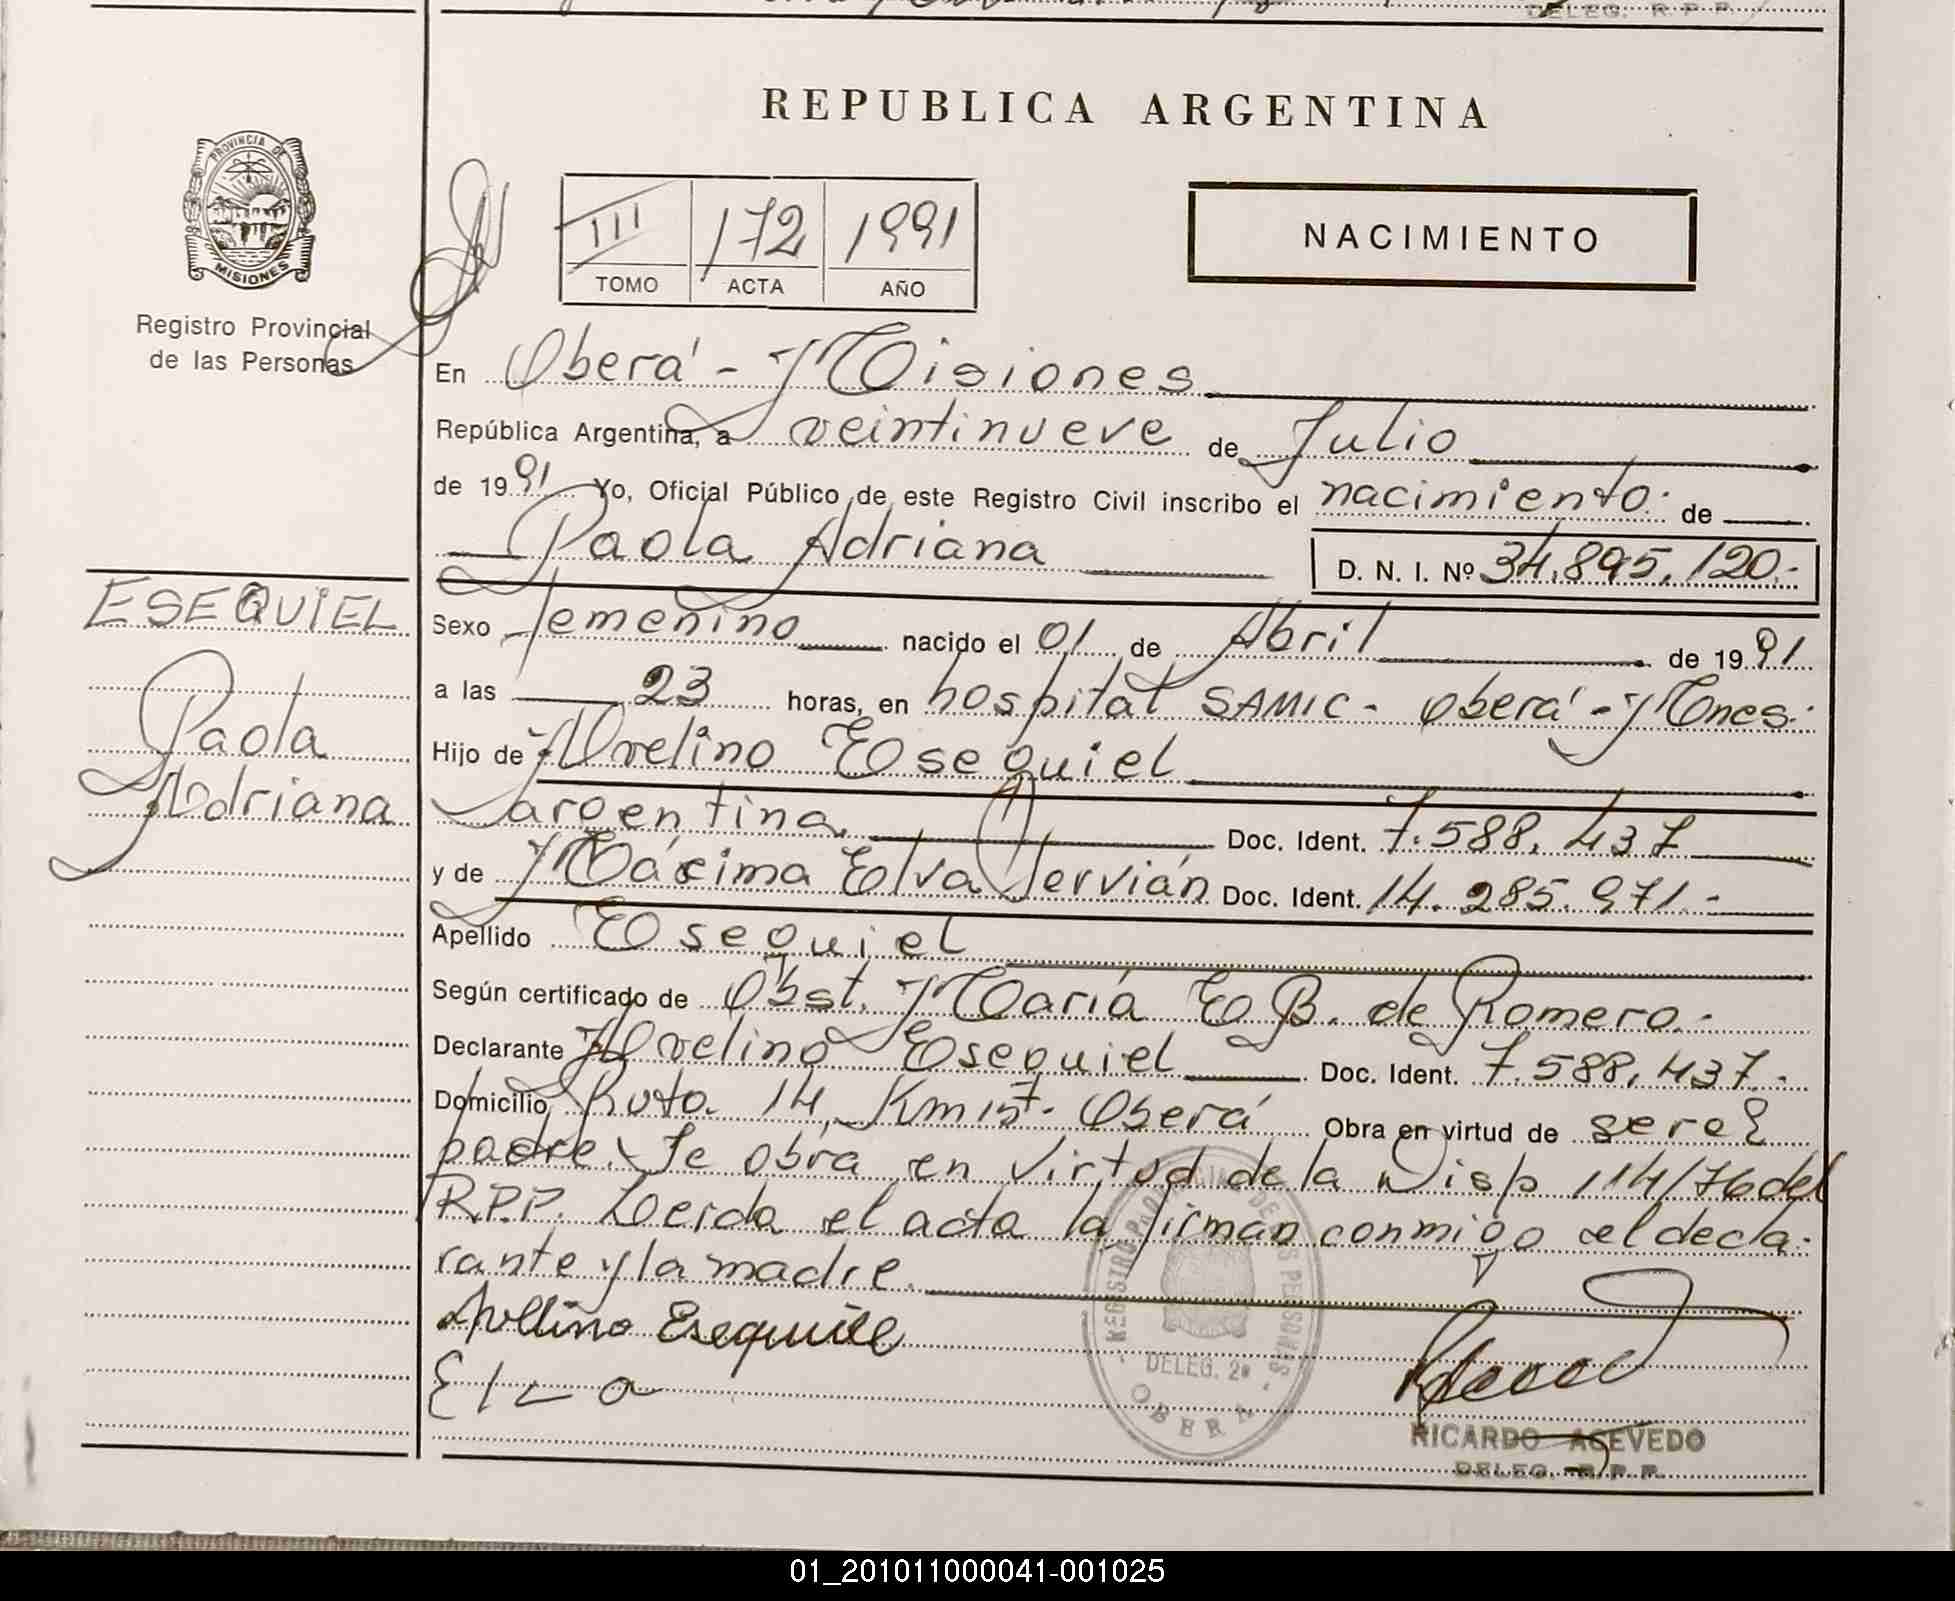 DELEG. R.P.P.
REPUBLICA ARGENTINA
PROVINCIA DE
MISIONES
Registro Provincial
de las Personas
III 172 1991
TOMO ACTA AÑO
NACIMIENTO
En Oberá - Misiones
República Argentina, a veintinueve de Julio
de 1991 Yo, Oficial Público de este Registro Civil inscribo el nacimiento de
Paola Adriana D. N. I. Nº 34.895.120.-
ESEQUIEL
Paola
Adriana
Sexo femenino nacido el 01 de Abril de 1991
a las 23 horas, en hospital SAMIC - Oberá - Mnes.
Hijo de Avelino Esequiel
argentina Doc. Ident. 7.588.437
y de Máxima Elva Servián Doc. Ident. 14.285.971.-
Apellido Esequiel
Según certificado de Obst. María E B. de Romero.-
Declarante Avelino Esequiel Doc. Ident. 7.588.437.-
Domicilio Ruta 14, Km Oberá Obra en virtud de ser el
padre. Se obra en virtud de la Disp 114/76 del
R.P.P. Leida el acta la firman conmigo el decla-
rante y la madre.
Avelino Esequiel
Elva
REGISTRO PROVINCIAL DE LAS PERSONAS
DELEG. 2ª
OBERA
RICARDO ACEVEDO
DELEG. R.P.P.
01_201011000041-001025